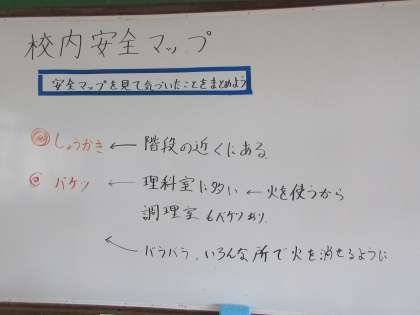 校内安全マップ
安全マップを見て気づいたことをまとめよう
しょうかき ← 階段の近くにある
バケツ ← 理科室に多い ← 火を使うから
調理室もバケツあり
← バラバラ、いろんな所で火を消せるように